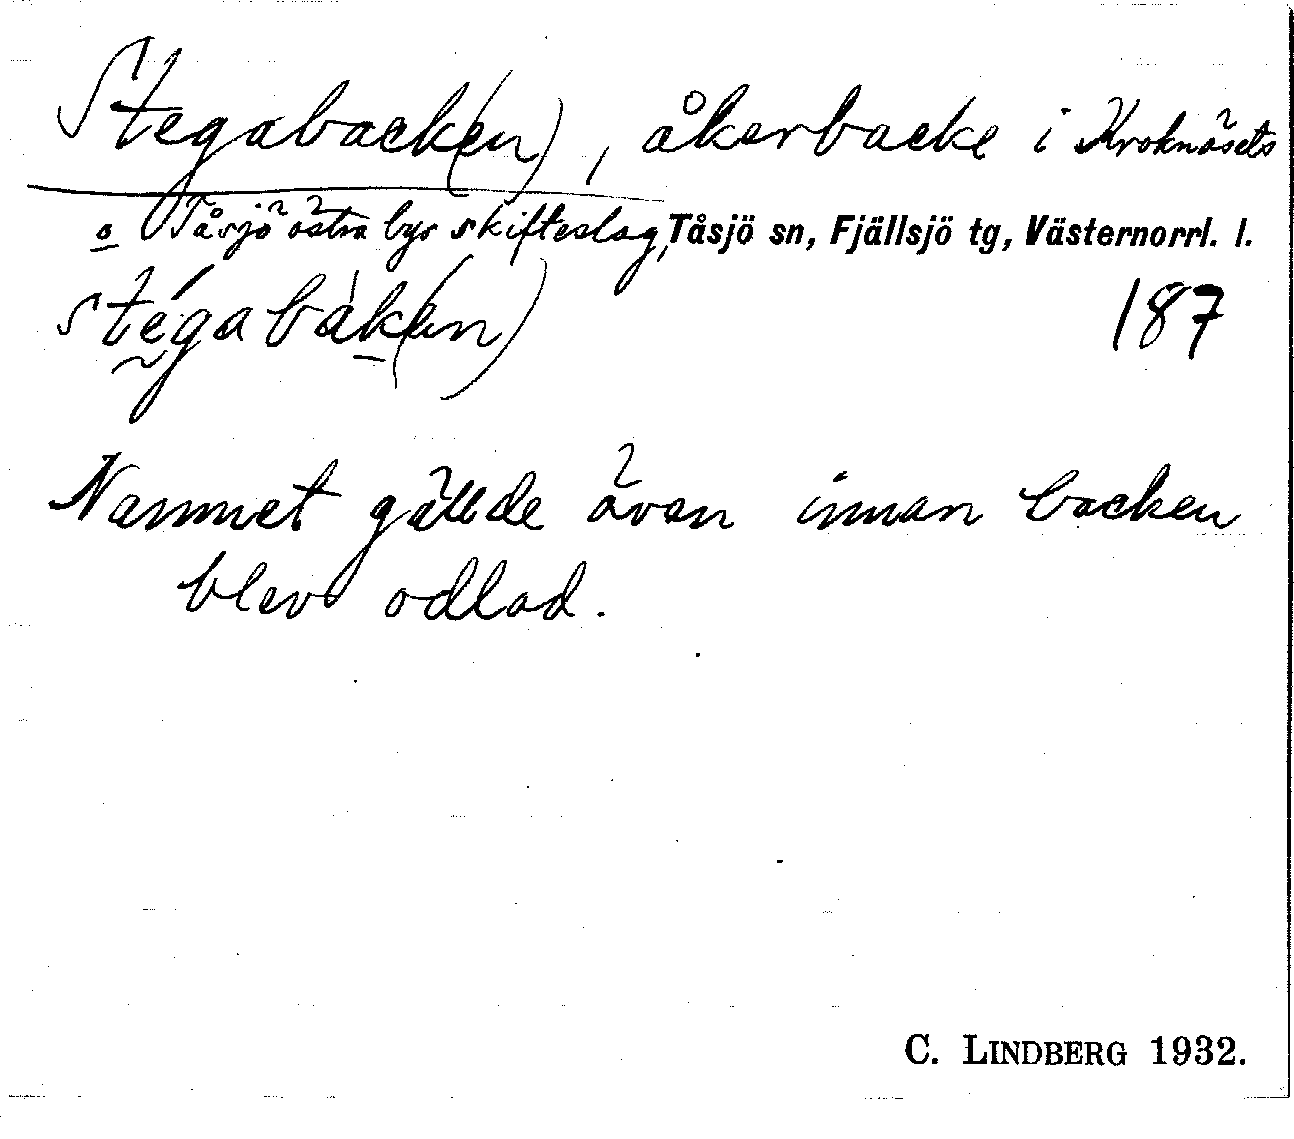 Stegaback(en), åkerbacke i Kroknäsets
o Tåsjö östra bys skifteslag, Tåsjö sn, Fjällsjö tg, Västernorrl. l.
stégabàk(en) 187
Namnet gällde även innan backen
blev odlad.
C. LINDBERG 1932.